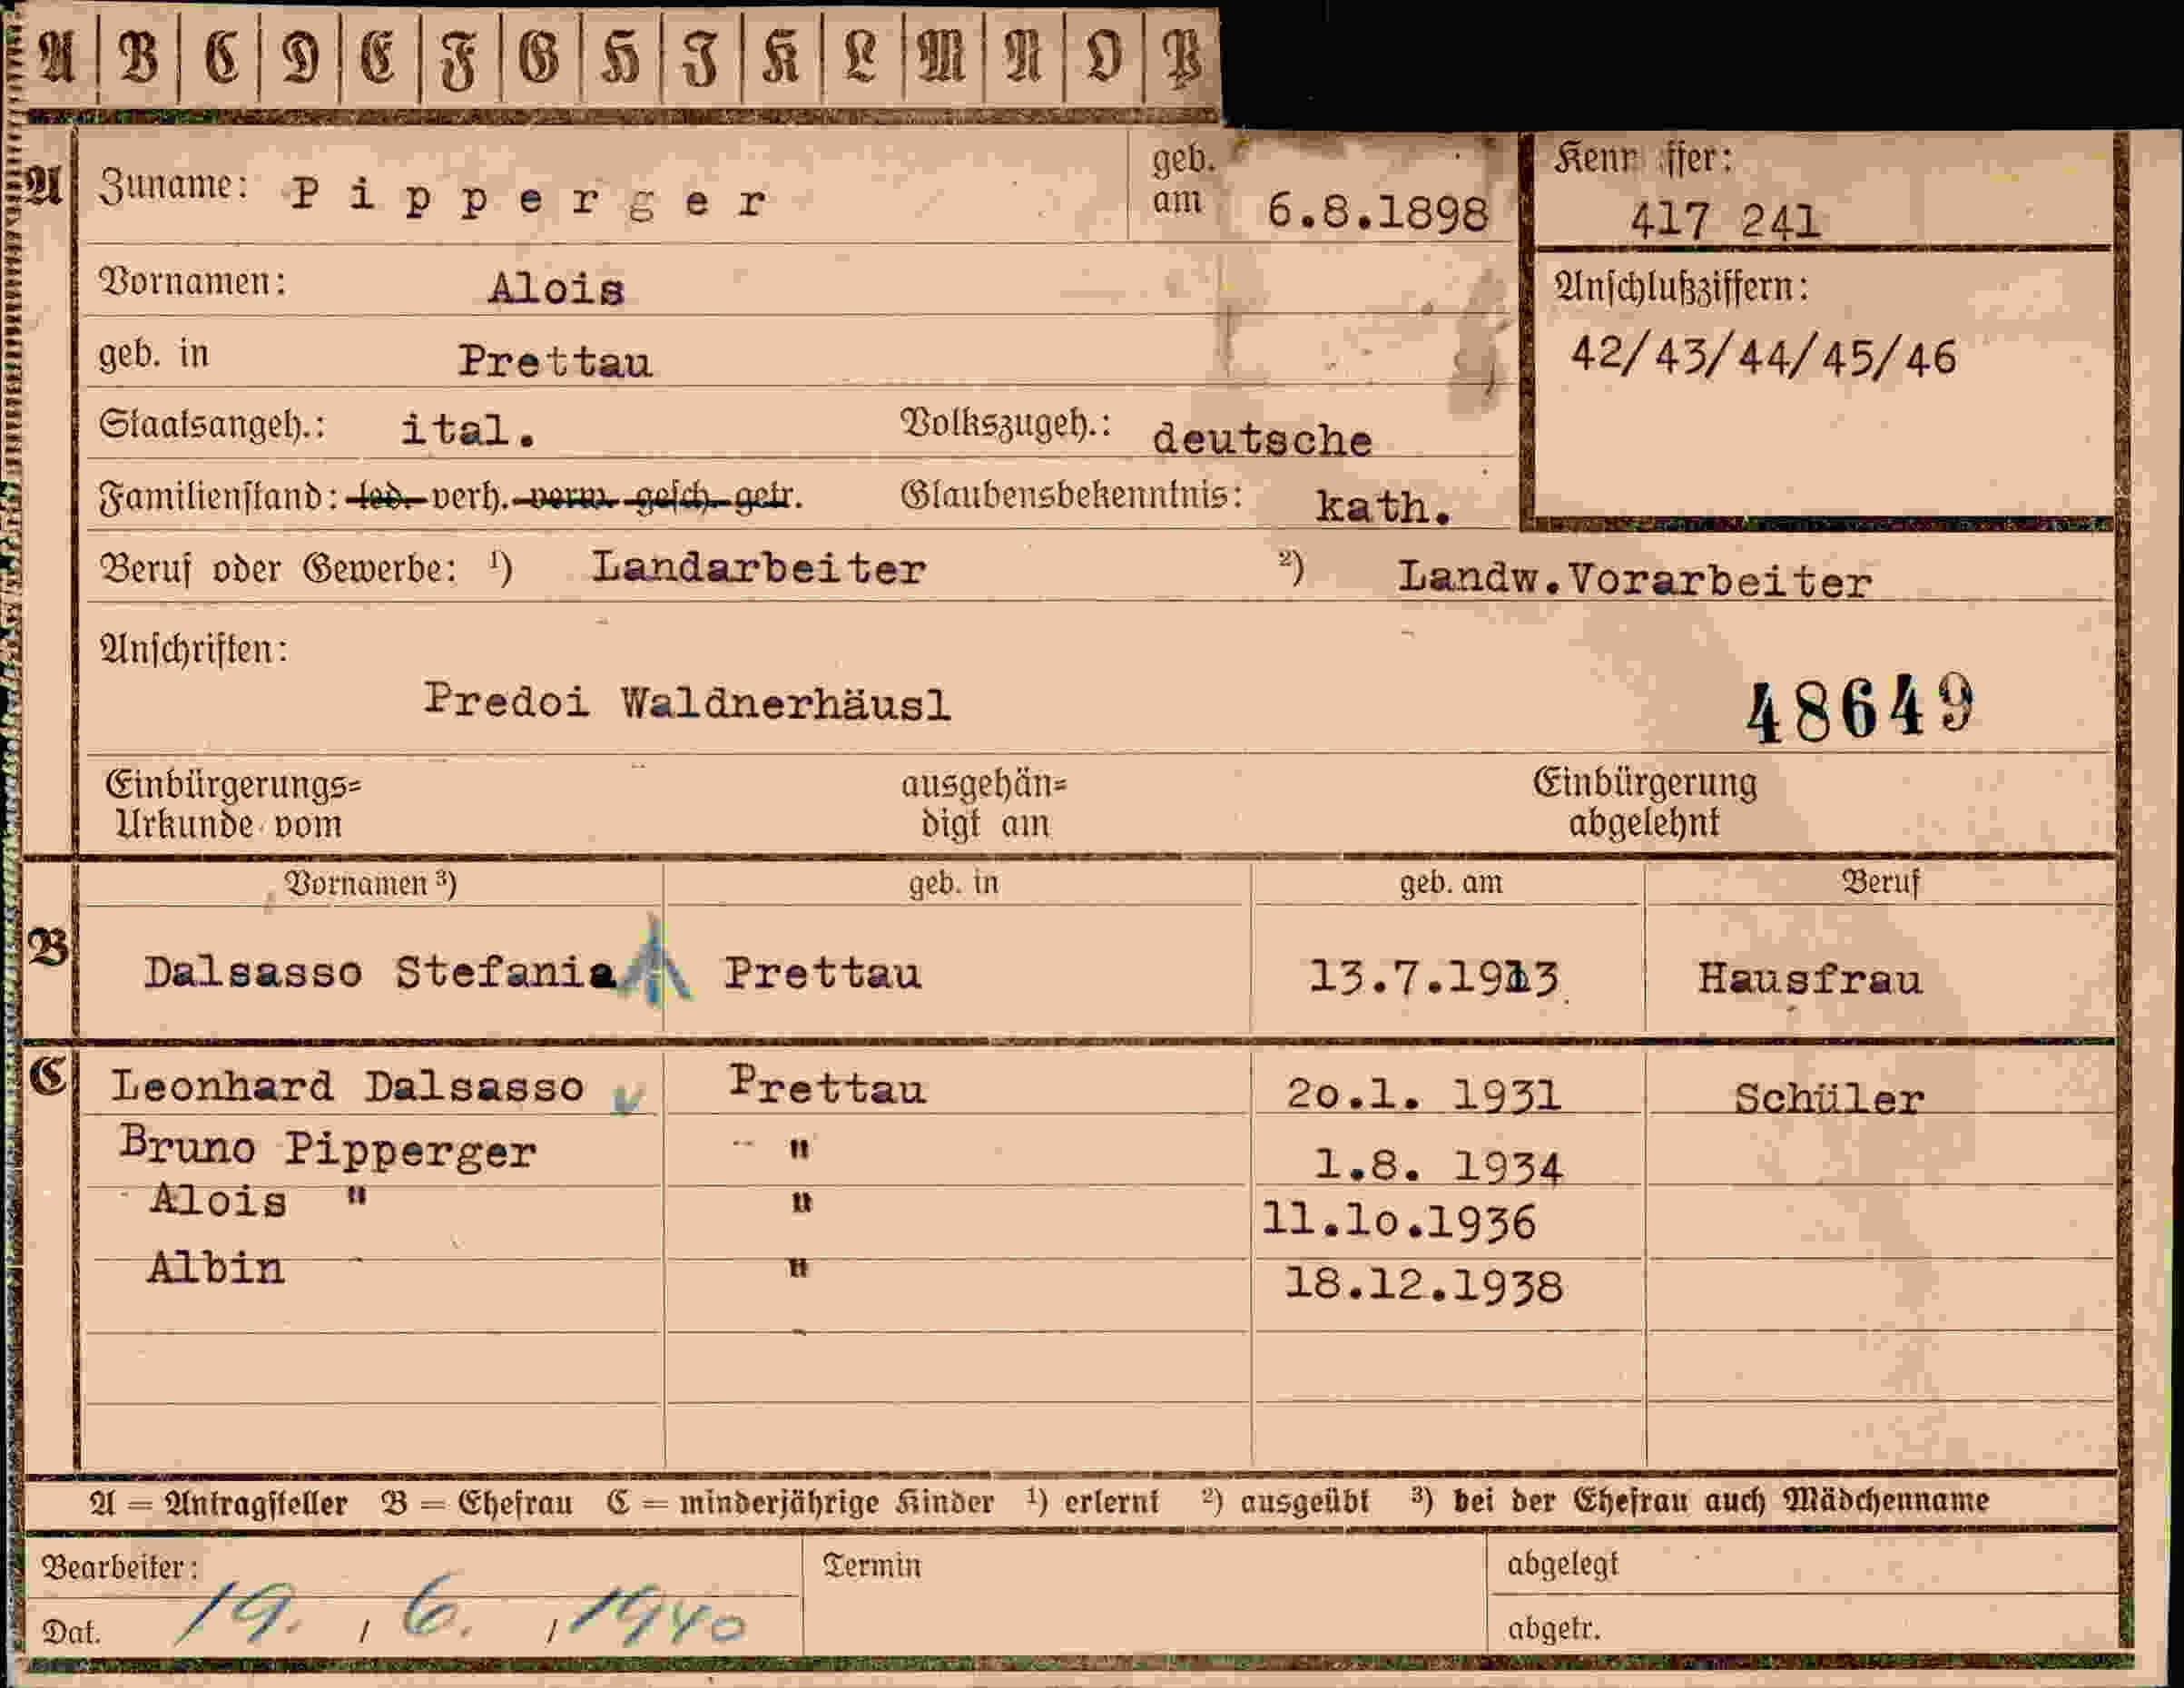 A B C D E F G H I K L M N O P
A Zuname: Pipperger geb. am 6.8.1898 Kenn ffer: 417 241
Vornamen: Alois Anschlußziffern:
geb. in Prettau 42/43/44/45/46
Staatsangeh.: ital. Volkszugeh.: deutsche
Familienstand: led. verh. verw. gesch. getr. Glaubensbekenntnis: kath.
Beruf oder Gewerbe: ¹) Landarbeiter ²) Landw.Vorarbeiter
Anschriften:
Predoi Waldnerhäusl 48649
Einbürgerungs= ausgehän= Einbürgerung
Urkunde vom digt am abgelehnt
Vornamen ³) geb. in geb. am Beruf
B Dalsasso Stefania Prettau 13.7.1913 Hausfrau
C Leonhard Dalsasso Prettau 2o.1. 1931 Schüler
Bruno Pipperger " 1.8. 1934
Alois " " 11.1o.1936
Albin " 18.12.1938
A = Antragsteller B = Ehefrau C = minderjährige Kinder ¹) erlernt ²) ausgeübt ³) bei der Ehefrau auch Mädchenname
Bearbeiter: Termin abgelegt
Dat. 19. / 6. / 1940 abgetr.